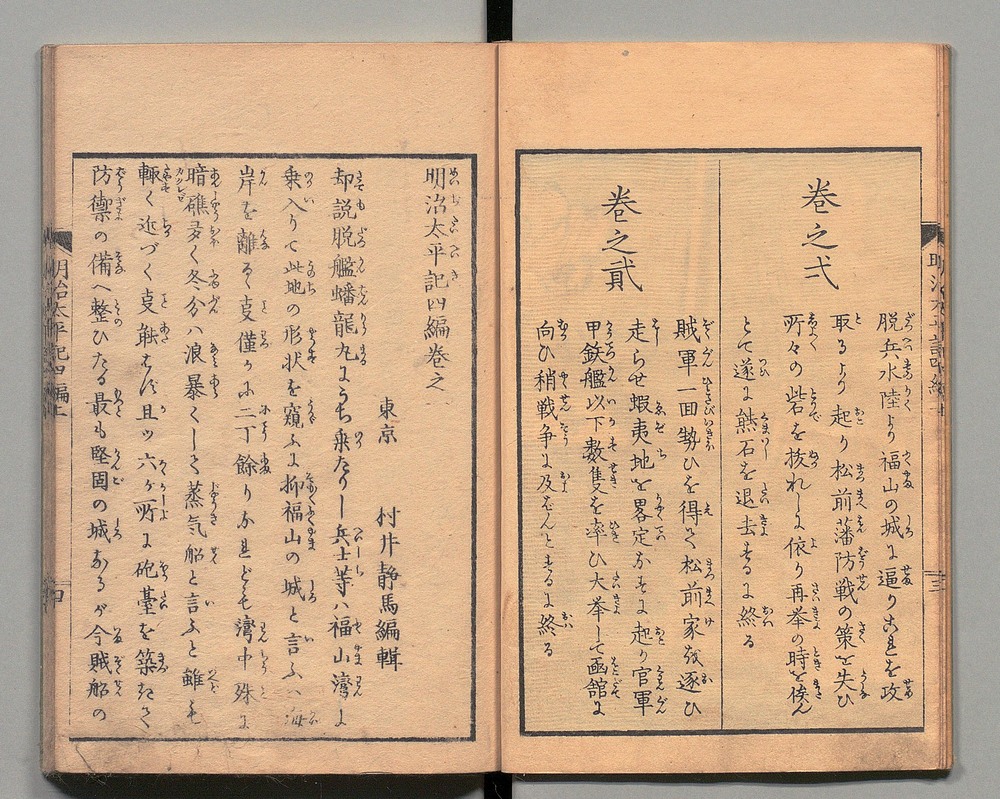 巻之弌
脱兵水陸より福山の城に逼り是を攻
取るより起り松前藩防戦の策を失ひ
所々の砦を抜れしに依り再挙の時を俟ん
とて遂に熊石を退去するに終る
巻之貳
賊軍一回勢ひを得て松前家を逐ひ
走らせ蝦夷地を畧定なすに起り官軍
甲鉄艦以下数隻を率ひ大挙して函館に
向ひ稍戦争に及ばんとするに終る
明治太平記四編上
明治太平記四編巻之一
東京 村井静馬編輯
却説脱艦蟠龍丸にうち乗たりし兵士等ハ福山湾に
乗入りて此地の形状を窺ふに抑福山の城と言ふハ海
岸を離るゝ支僅かに二丁餘りなれども湾中殊に
暗礁多く冬分ハ浪暴くして蒸気船と言ふと雖も
輙く近づく支能はず且ッ六ヶ所に砲臺を築きて
防禦の備へ整ひたる最も堅固の城なるが今賊船の
明治太平記四編上
四